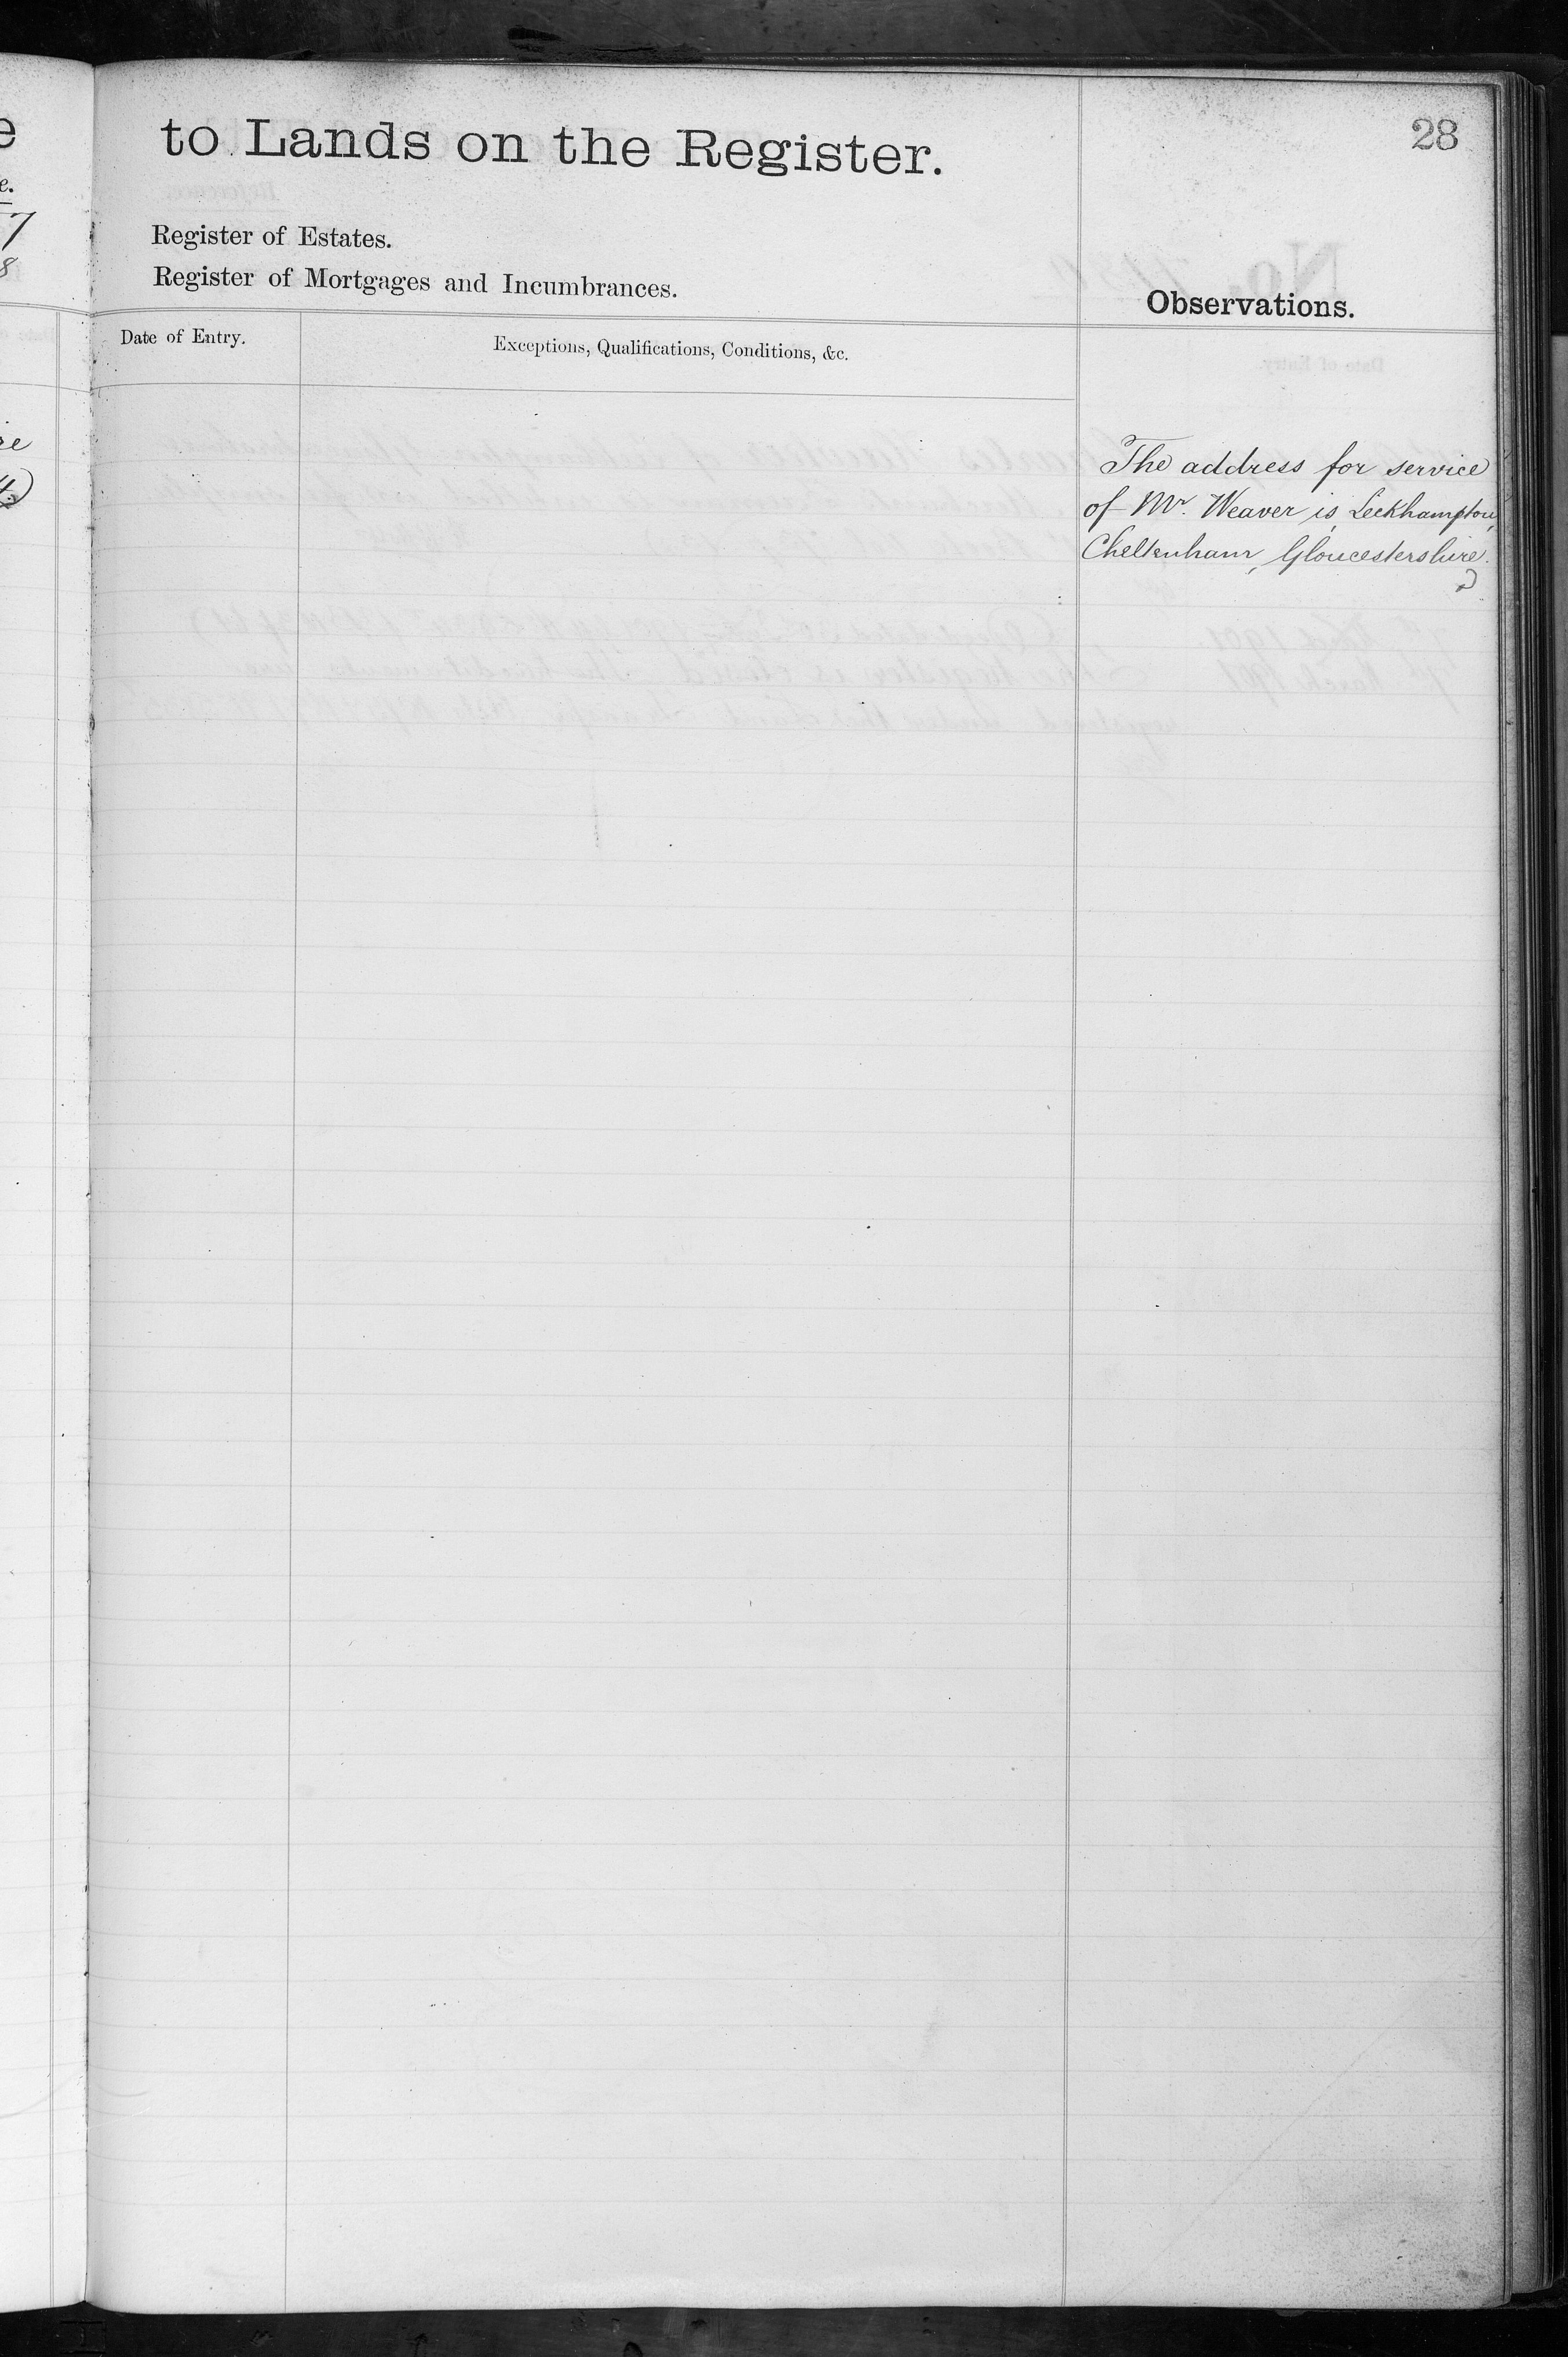 28
to Lands on the Register.
Register of Estates.
Register of Mortgages and Incumbrances.
Observations.
Date of Entry.
Exceptions, Qualifications, Conditions, &c.
The address for service
of Mr. Weaver is Leckhampton,
Cheltenham, Gloucestershire.